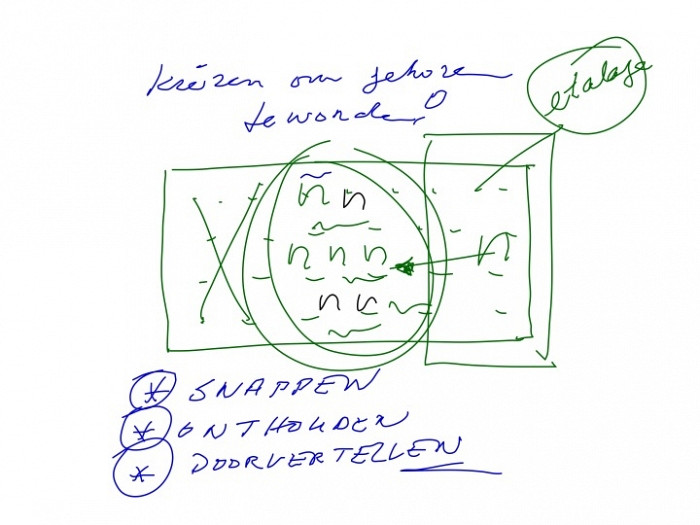 kiezen om gekozen
te worden
etalage
n n
n n n n
n n
* SNAPPEN
* ONTHOUDEN
* DOORVERTELLEN